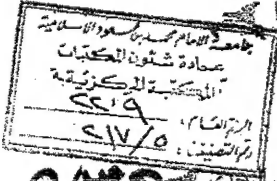 جامعة الإمام محمد بن سعود الإسلامية
عمادة شئون المكتبات
المكتبة المركزية
الرقم العام : ٢٢١٩
رقم التصنيف : ٢١٧/٥